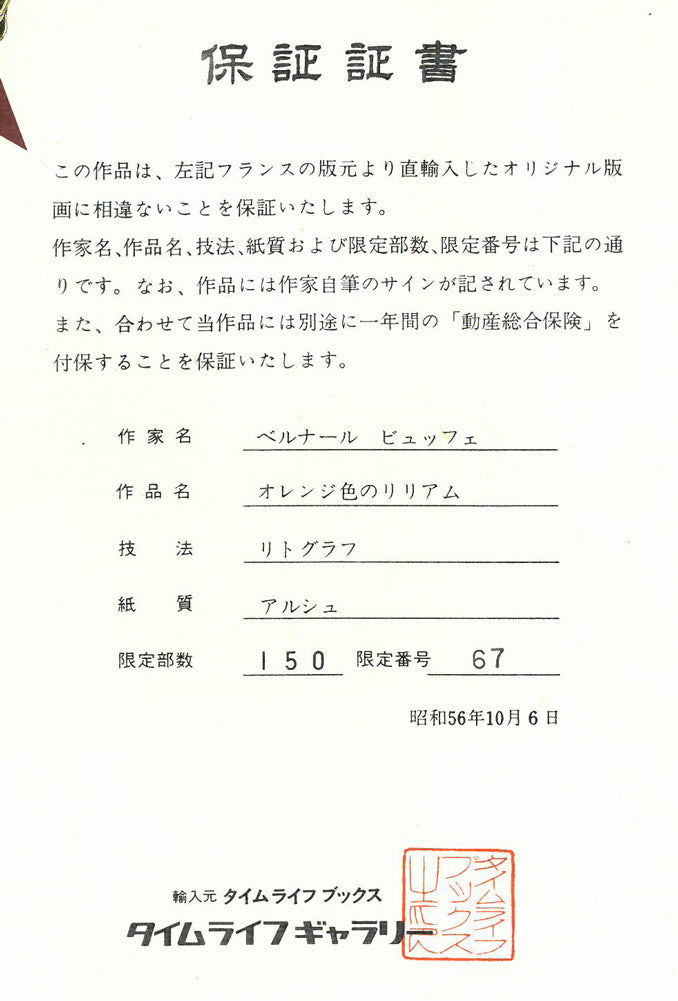 保証証書
この作品は、左記フランスの版元より直輸入したオリジナル版
画に相違ないことを保証いたします。
作家名、作品名、技法、紙質および限定部数、限定番号は下記の通
りです。なお、作品には作家自筆のサインが記されています。
また、合わせて当作品には別途に一年間の「動産総合保険」を
付保することを保証いたします。
作家名 ベルナール ビュッフェ
作品名 オレンジ色のリリアム
技法 リトグラフ
紙質 アルシュ
限定部数 150 限定番号 67
昭和56年10月6日
輸入元 タイムライフ ブックス
タイムライフギャラリー
タイムライフ
ブックス